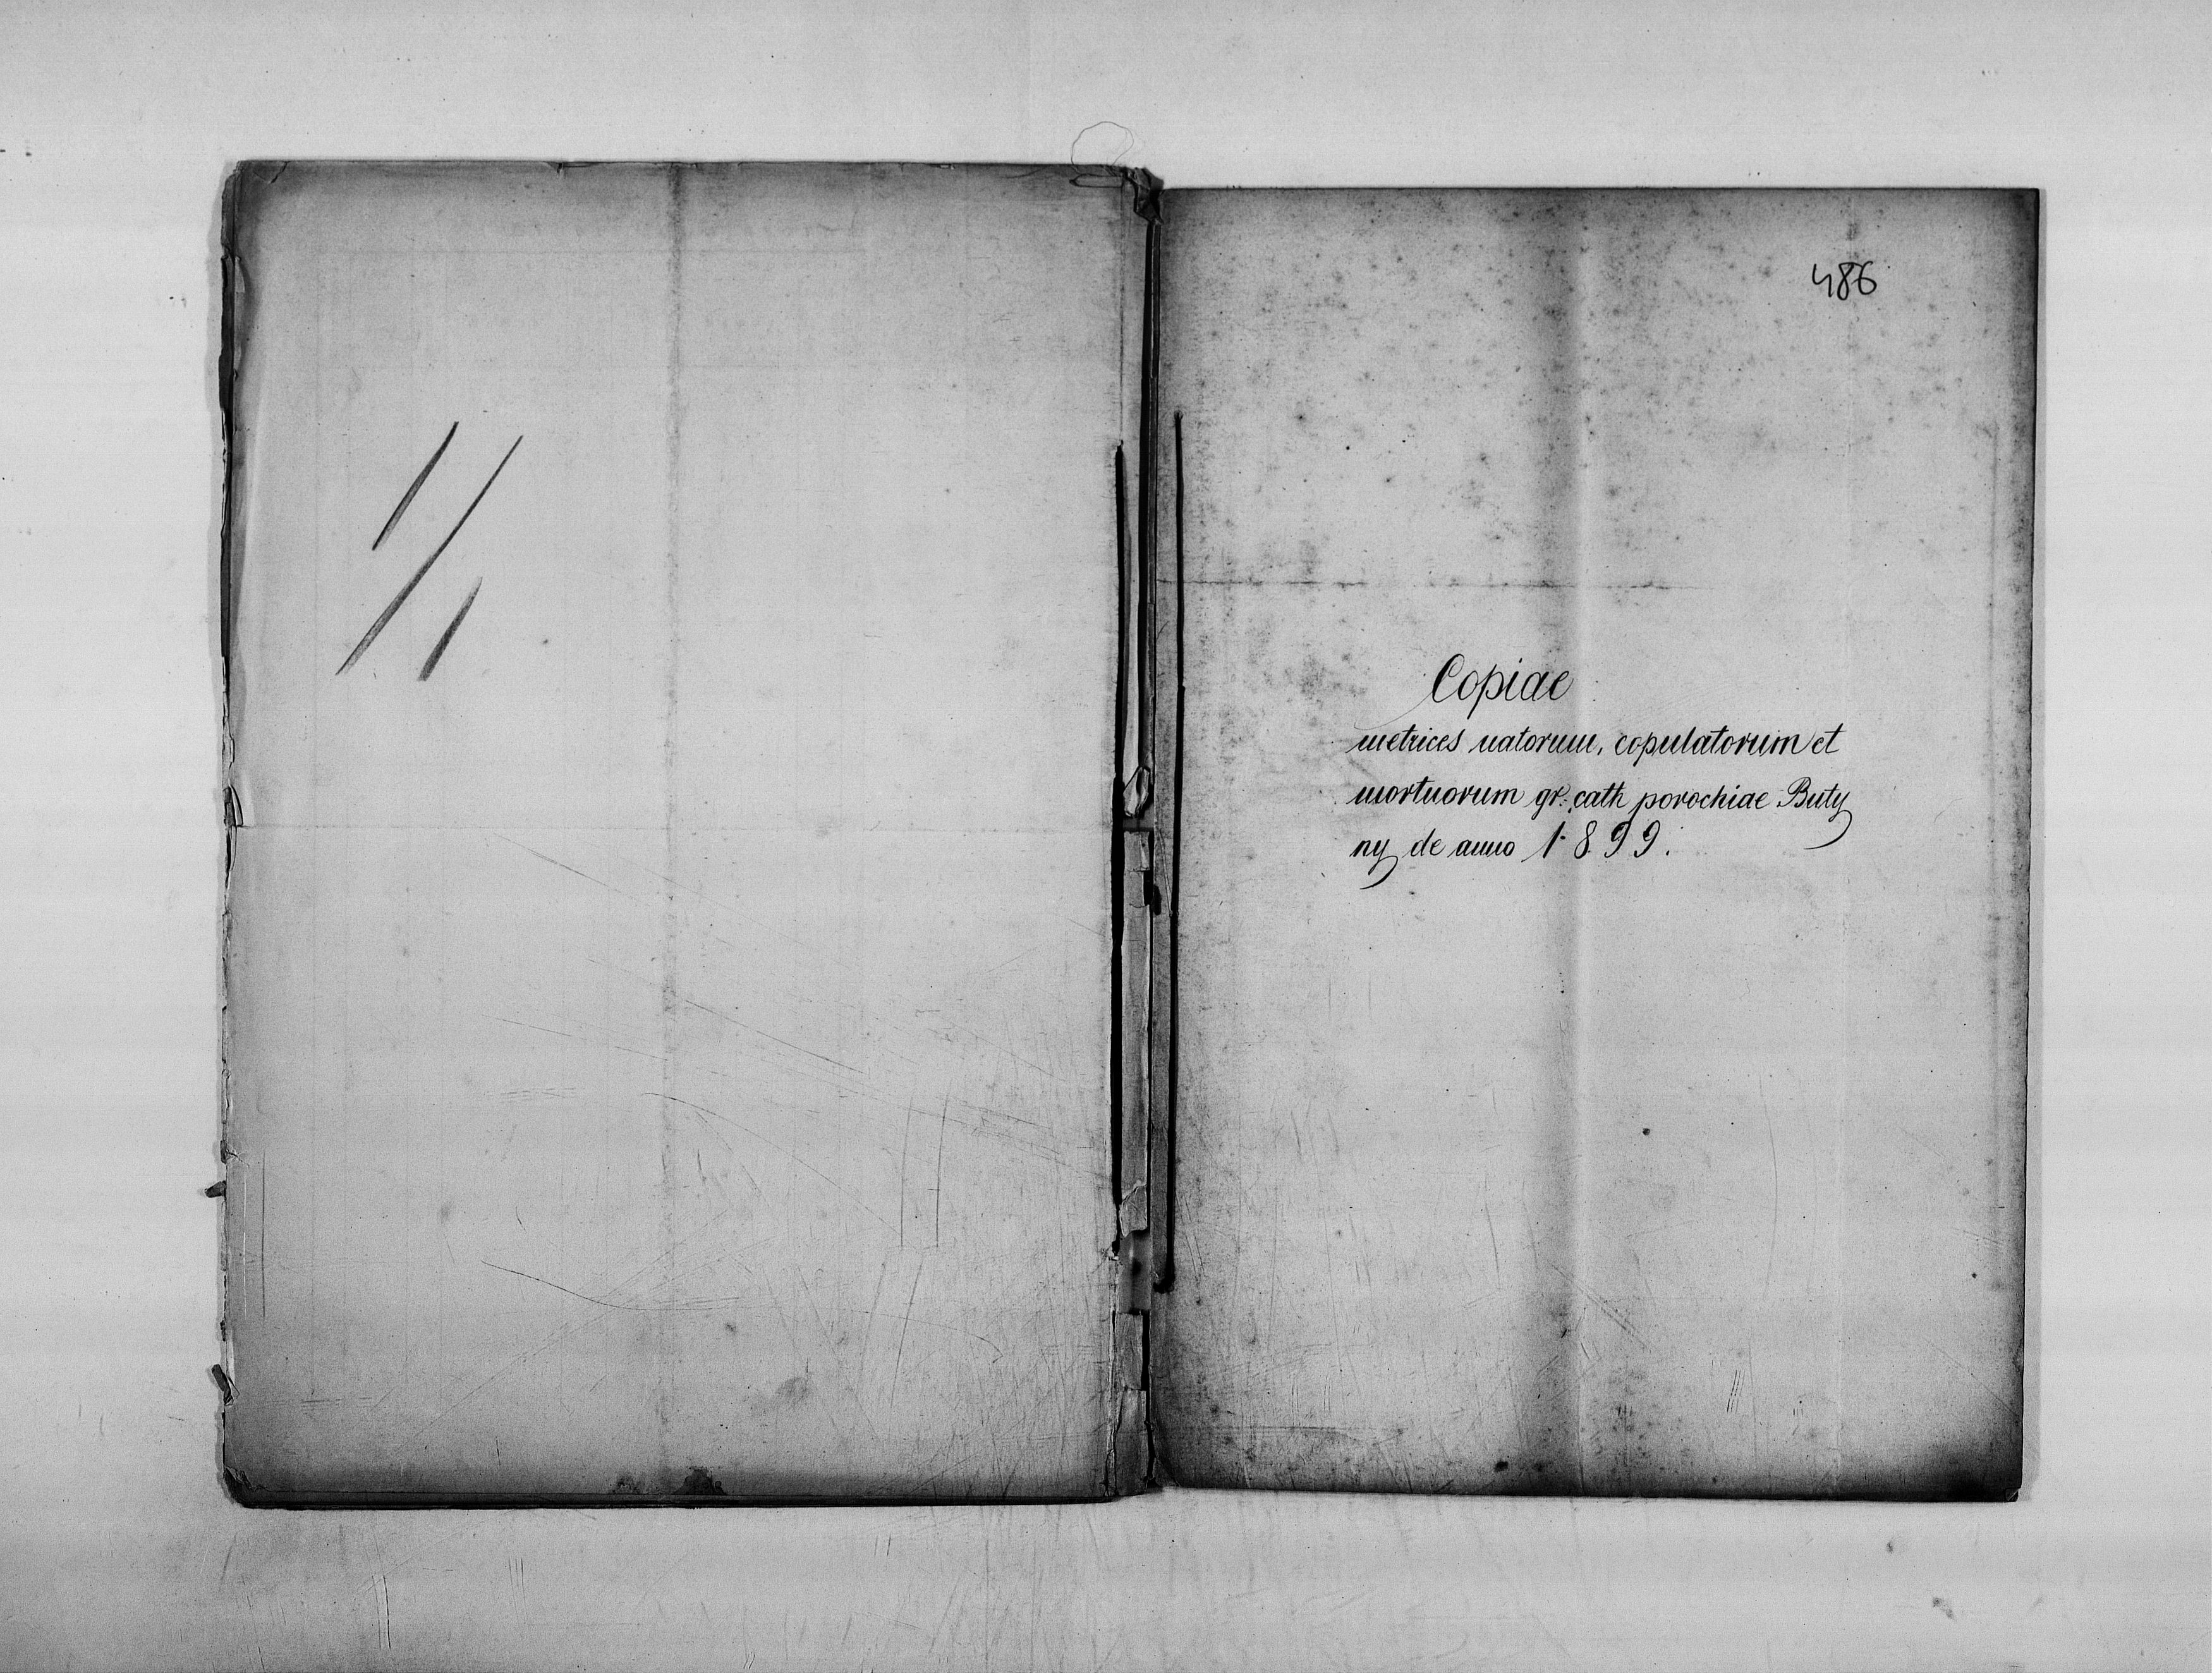 486
Copiae
metrices natorum, copulatorum et
mortuorum gr. cath porochiae Buty
ny de anno 1899.